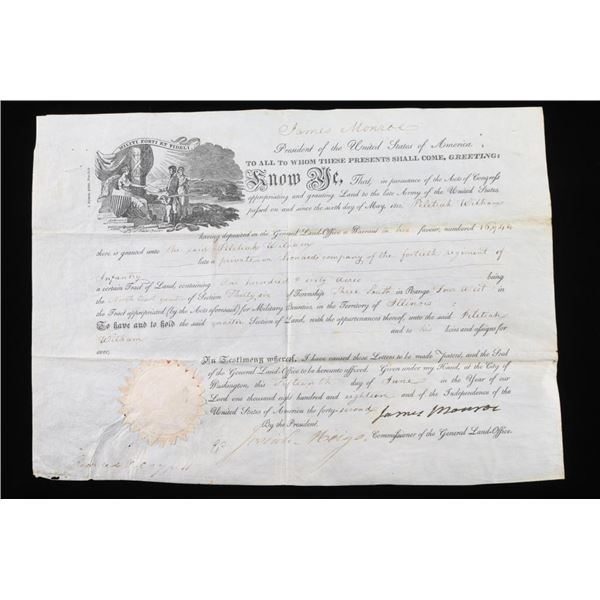 MILITI FORTI ET FIDELI
James Monroe
President of the United States of America.
TO ALL TO WHOM THESE PRESENTS SHALL COME, GREETING:
Know Ye, That, in pursuance of the Acts of Congress
appropriating and granting Land to the late Army of the United States
passed on and since the sixth day of May, 1812, Peletiah William
having deposited in the General Land-Office a Warrant in his favor, numbered
there is granted unto the said Peletiah William
late a private in company of the fortieth regiment of
Infantry a certain Tract of Land, containing One hundred & sixty Acres being
the North East quarter of Section Thirty six of Township Three South, in Range Four West in
the Tract appropriated (by the Acts aforesaid) for Military Bounties, in the Territory of Illinois:
To have and to hold the said quarter Section of Land, with the appurtenances thereof, unto the said Peletiah
William and to his heirs and assigns for
ever,
In Testimony whereof, I have caused these Letters to be made Patent, and the Seal
of the General Land-Office to be hereunto affixed. Given under my Hand, at the City of
Washington, this fifteenth day of June in the Year of our
Lord one thousand eight hundred and eighteen and of the Independence of the
United States of America the forty-second James Monroe
By the President.
Josiah Meigs Commissioner of the General Land-Office.